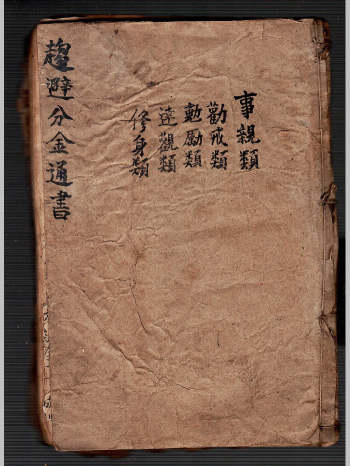 事親類
勸戒類
勳勵類
達觀類
修身類
趨避分金通書